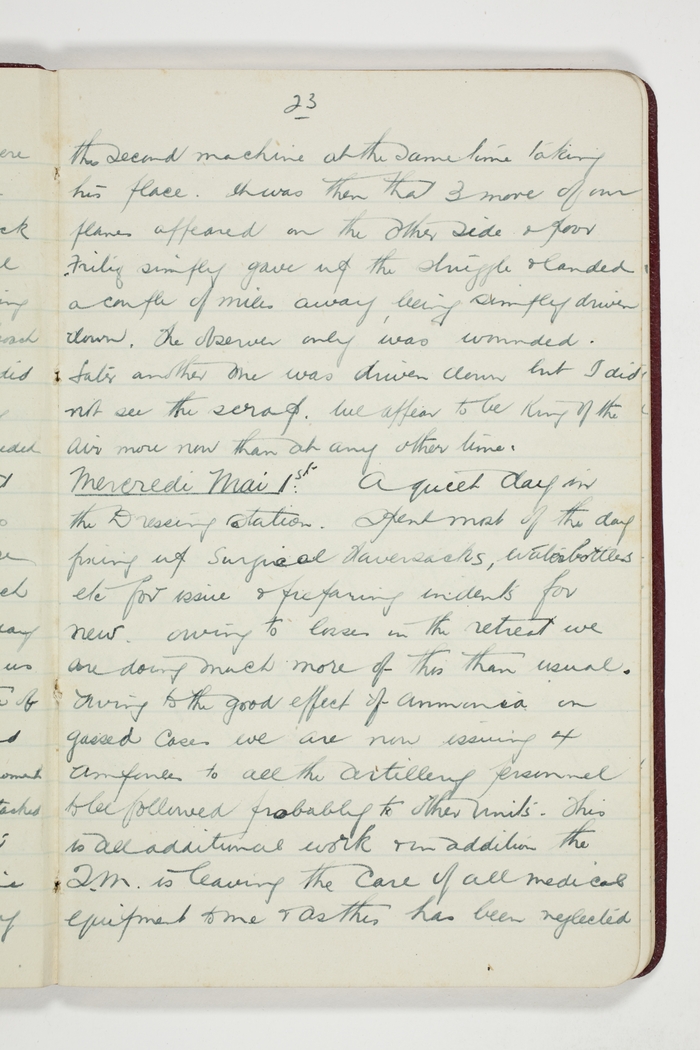 23
the second machine at the same time taking
his place. It was then that 3 more of our
planes appeared on the other side & poor
Fritz simply gave up the struggle & landed
a couple of miles away, being simply driven
down. The observer only was wounded.
Later another one was driven down but I did
not see the scrap. We appear to be King of the
air more now than at any other time.
Mercredi Mai 1st. A quiet day in
the Dressing Station. Spent most of the day
fixing up Surgical Haversacks, waterbottles
etc for issue & preparing indents for
new. Owing to losses in the retreat we
are doing much more of this than usual.
Owing to the good effect of ammonia on
gassed cases we are now issuing 4
ampoules to all the Artillery personnel
to be followed probably to other units. This
is all additional work & in addition the
Q.M. is leaving the care of all medical
equipment to me & as this has been neglected
ere
ck
ing
did
eded
ch
us